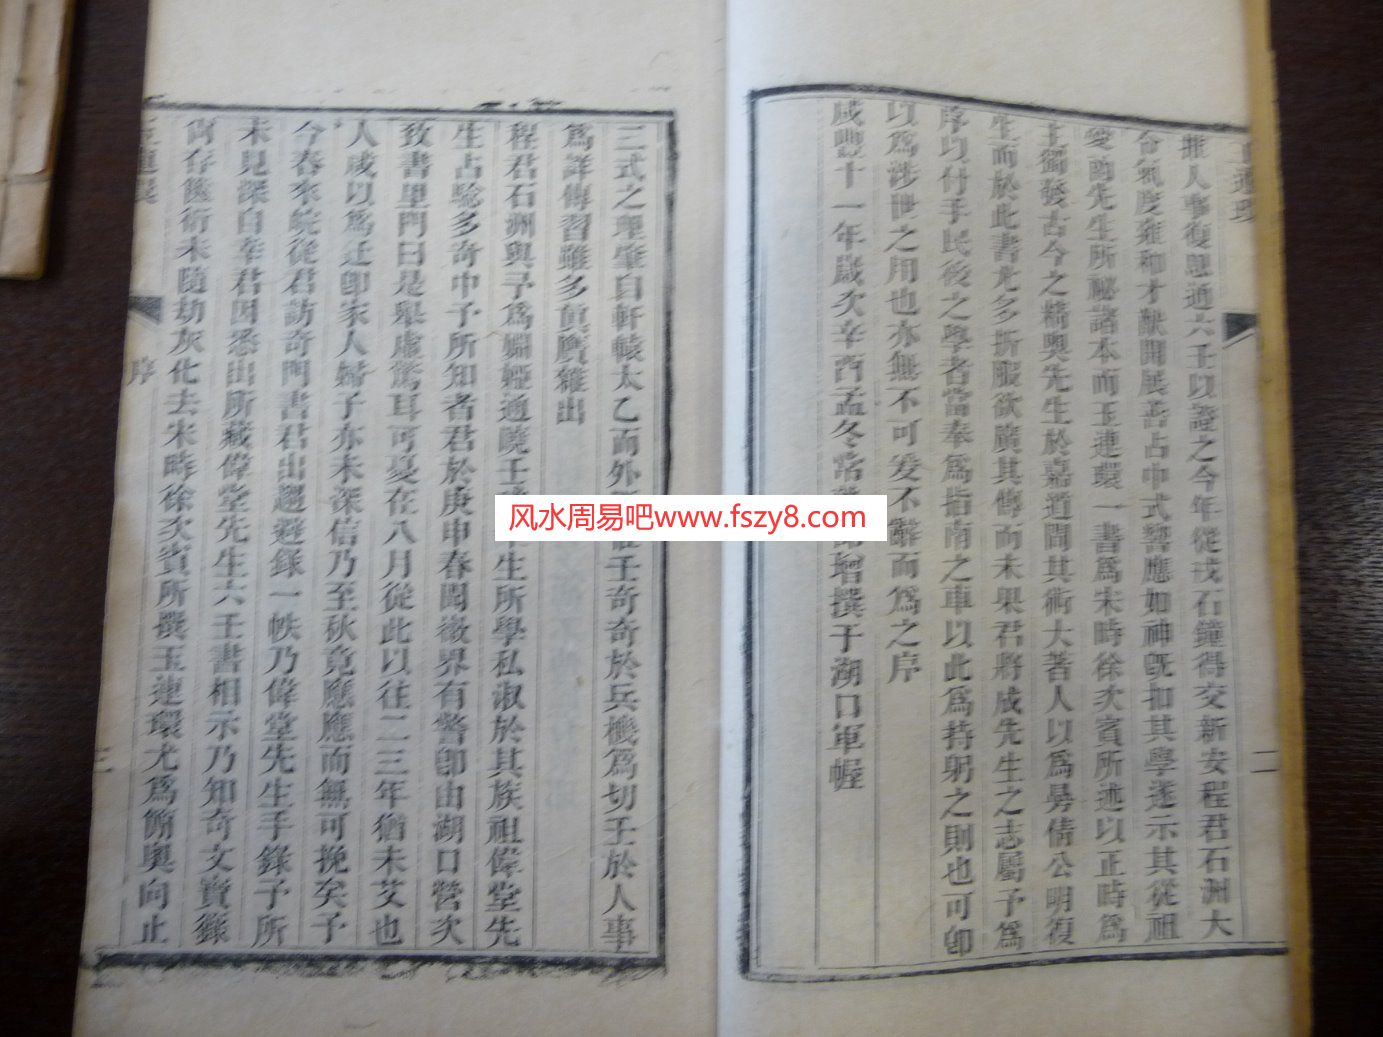 推人事復恩通六壬以證之今年從戎石鐘得交新安程君石洲大
合氣度雍和才猷開展舌占中式響應如神旣扣其學遂示其從祖
愛函先生所秘諸本而玉連環一書為宋時徐次賓所述以正時為
主獨發古今之精奧先生於嘉道間其術大著人以為昜倩公明復
生而於此書尤多折服欲廣其傳而未果君將成先生之志屬予為
序以付手民後之學者當奉為指南之車以此為持躬之則也可卽
以為涉世之用也亦無不可爰不辭而為之序
咸豐十一年歲次辛酉孟冬常增撰于湖口軍幄
二
三式之理肇自軒轅太乙而外壬奇奇於兵機為切壬於人事
為詳傳習雖多眞贋雜出
程君石洲與予為姻婭通曉壬生所學私淑於其族祖偉堂先
生占驗多奇中予所知者君於庚申春聞徽界有警卽由湖口營次
致書里門曰是舉虛驚耳可憂在八月從此以往二三年猶未艾也
人咸以為迂卽家人婦子亦未深信乃至秋竟應應而無可挽矣予
今春來皖從君訪奇門書君出趨避錄一帙乃偉堂先生手錄予所
未見深自幸君因悉出所藏偉堂先生六壬書相示乃知奇文寶籙
尚存篋衍未隨劫灰化去宋時徐次賓所撰玉連環尤為簡奧向止
玉連環
序
三
风水周易吧www.fszy8.com